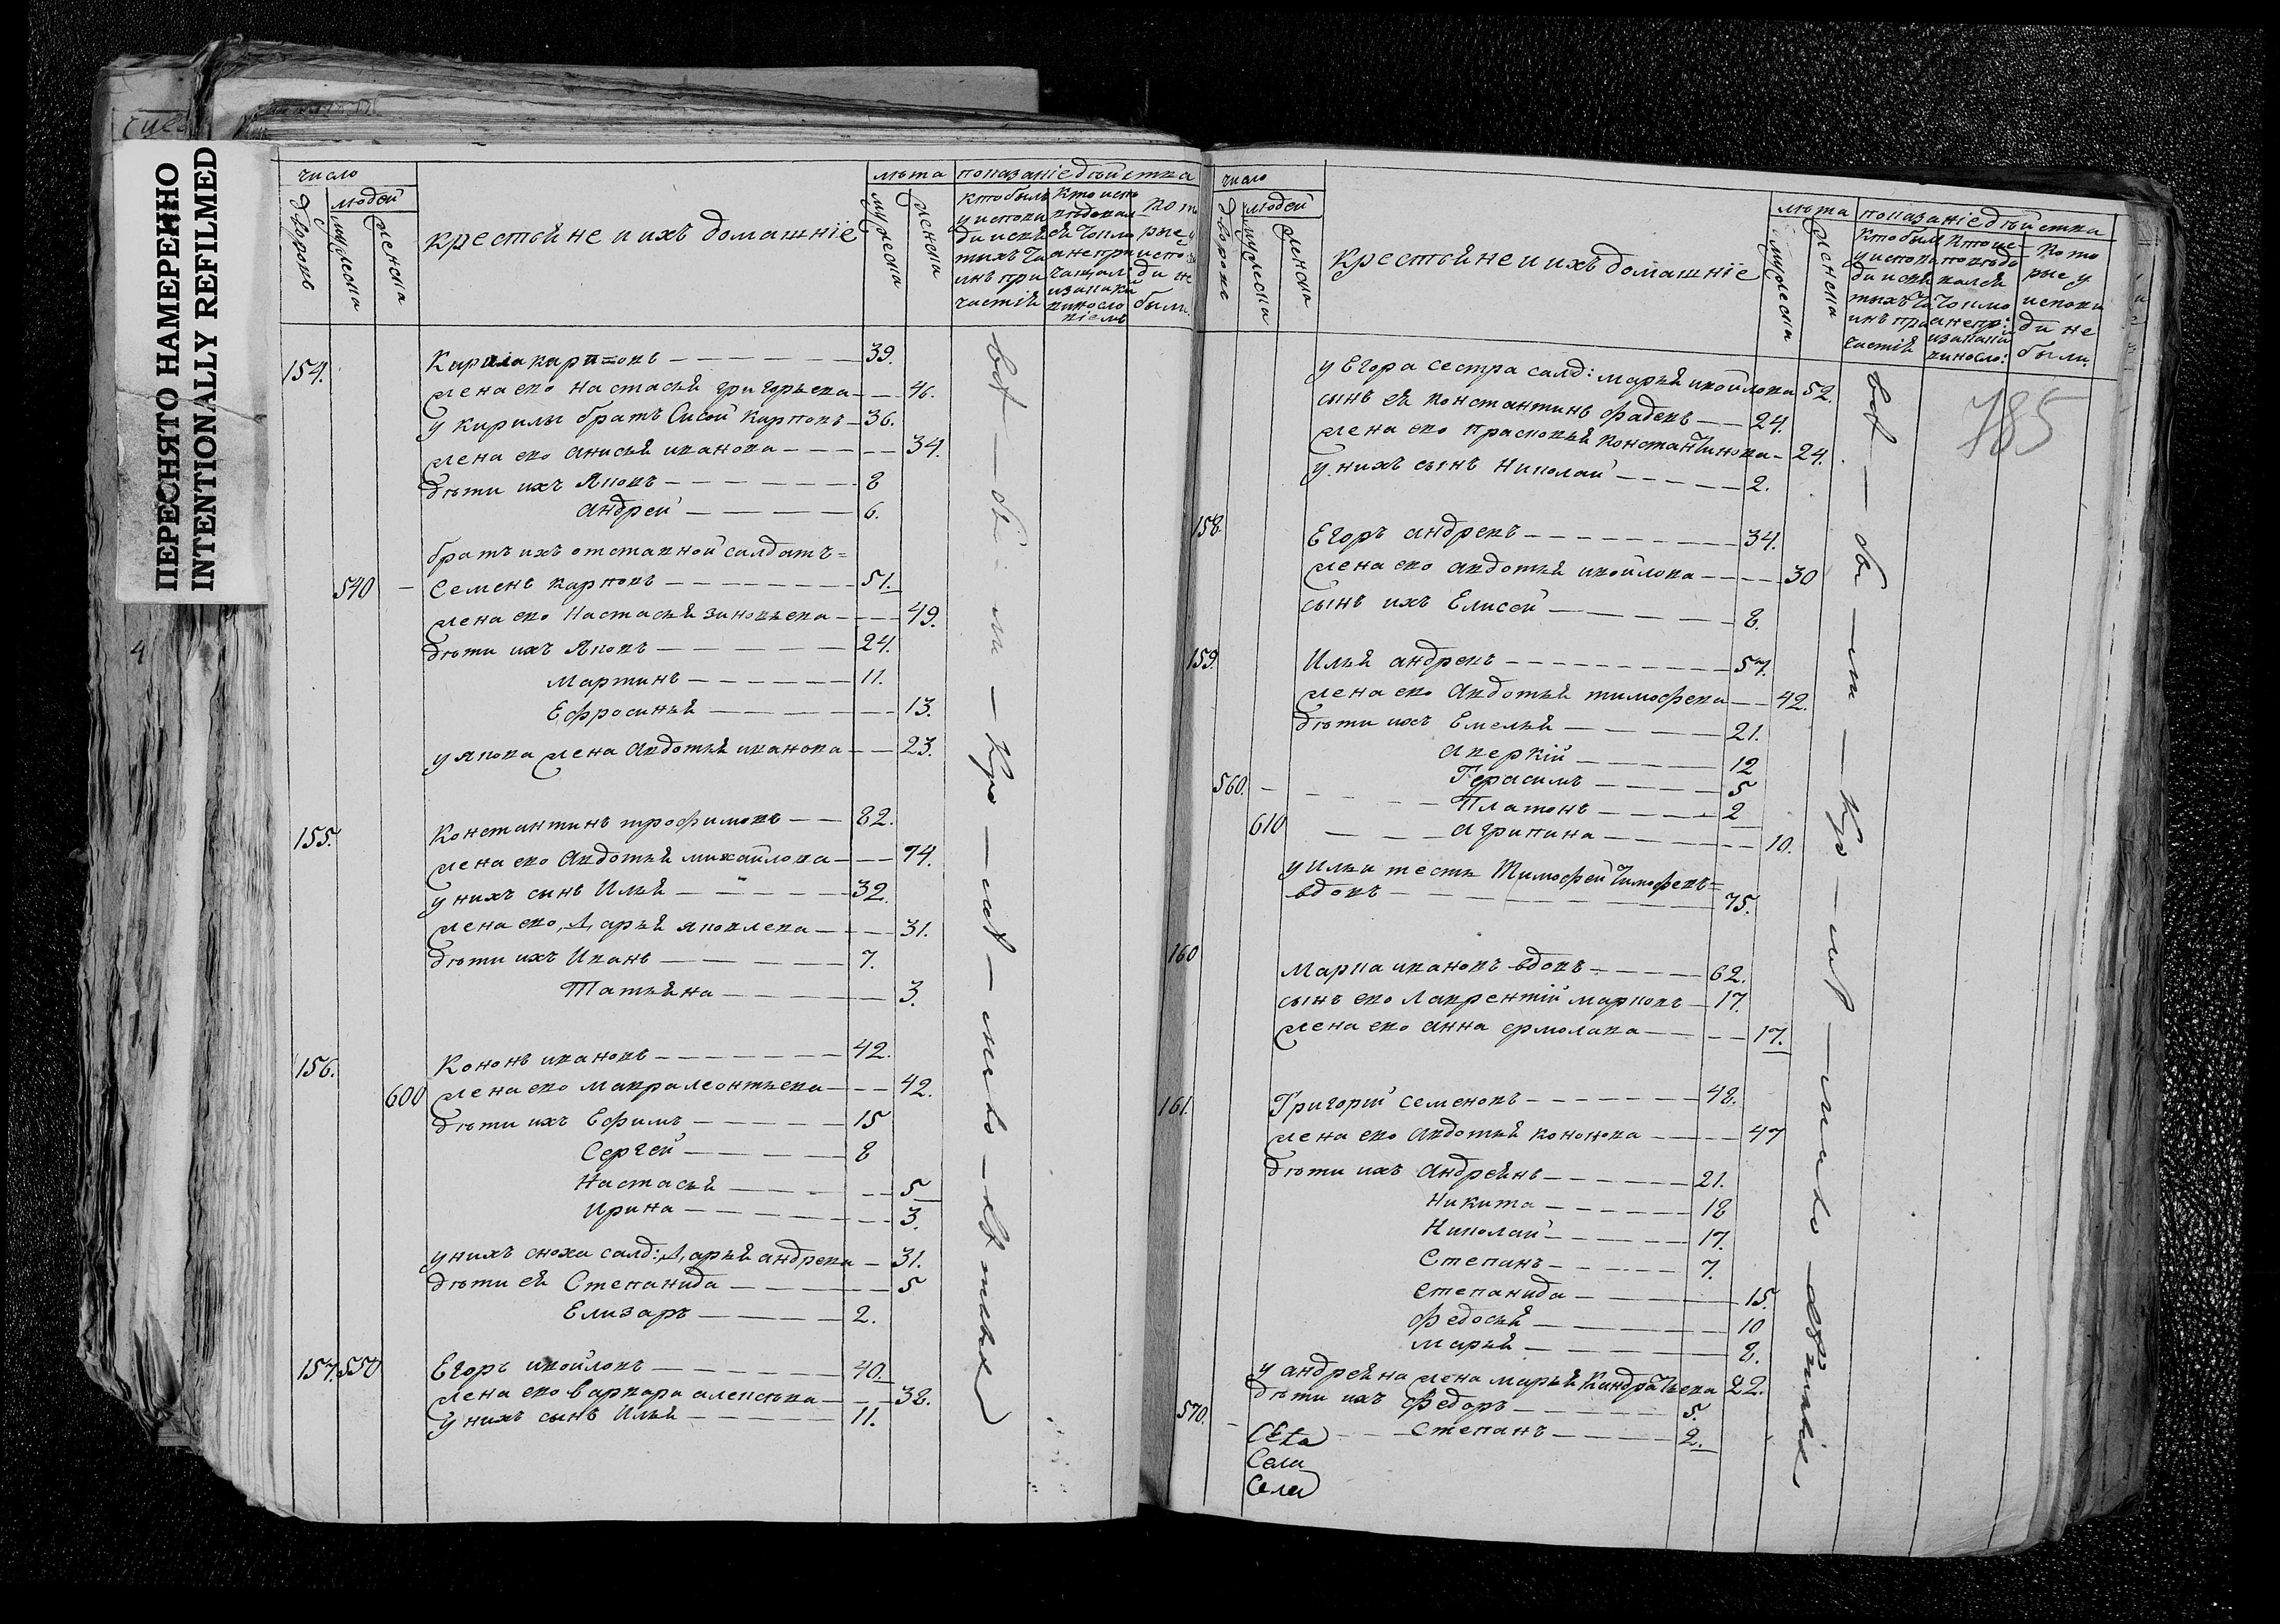 ПЕРЕСНЯТО НАМЕРЕННО
INTENTIONALLY REFILMED
4
число
дворовъ
людей
мужеска
женска
крестьяне и ихъ домашніе
лѣта
мужеска
женска
показаніе дѣйства
кто былъ у исповѣди и святыхъ таинъ причастія
кто исповѣдовался токмо а не причащался и за какимъ винословіемъ
которые у исповѣди не были.
154. Кирила карповъ 39.
жена ево настасья григорьева 46.
у кирилы братъ Сисой Карповъ 36.
жена ево анисья иванова 34.
дѣти ихъ Яковъ 8
андрей 6.
братъ ихъ отставной салдатъ=
540 Семенъ карповъ 51.
жена ево Настасья зиновьева 49.
дѣти ихъ Яковъ 24.
Мартинъ 11.
Ефросинья 13.
у якова жена авдотья иванова 23.
155. Константинъ трофимовъ 82.
жена ево авдотья михайлова 74.
у нихъ сынъ Илья 32.
жена ево Дарья яковлева 31.
дѣти ихъ Иванъ 7.
Татьяна 3.
156. Кононъ ивановъ 42.
600 жена ево мавра леонтьева 42.
дѣти ихъ Ефимъ 15
Сергей 8
Настасья 5
Ирина 3.
у нихъ сноха салд: Дарья андрева 31.
дѣти ея Степанида 5
Елизаръ 2.
157. 550 Егоръ ивойловъ 40.
жена ево варвара алексѣва 38.
У нихъ сынъ Илья 11.
число
дворовъ
людей
мужеска
женска
Крестьяне и ихъ домашніе
лѣта
мужеска
женска
показаніе дѣйства
785
у Егора сестра салд: марья ивойлова 52.
сынъ ея константинъ фадевъ 24.
жена ево прасковья константинова 24.
у нихъ сынъ Николай 2.
158. Егоръ андревъ 34.
жена ево авдотья ивойлова 30
сынъ ихъ Елисей 8.
159. Илья андревъ 57.
жена ево авдотья тимофева 42.
дѣти ихъ Емелья 21.
аверкій 12
Герасимъ 5
560. Платонъ 2
610 агрипина 10.
у ильи тесть Тимофей тимофевъ=
вдовъ 75.
160 Марка ивановъ вдовъ 62.
сынъ ево лаврентій марковъ 17.
жена ево анна ермолава 17.
161. Григорій семеновъ 48.
жена ево авдотья кононова 47
дѣти ихъ андреянъ 21.
Никита 18
Николай 17.
Степанъ 7.
степанида 15.
федосья 10
марья 8.
у андреяна жена марья Кандратьева 22.
дѣти ихъ Федоръ 5.
570. Степанъ 2.
Села
Села